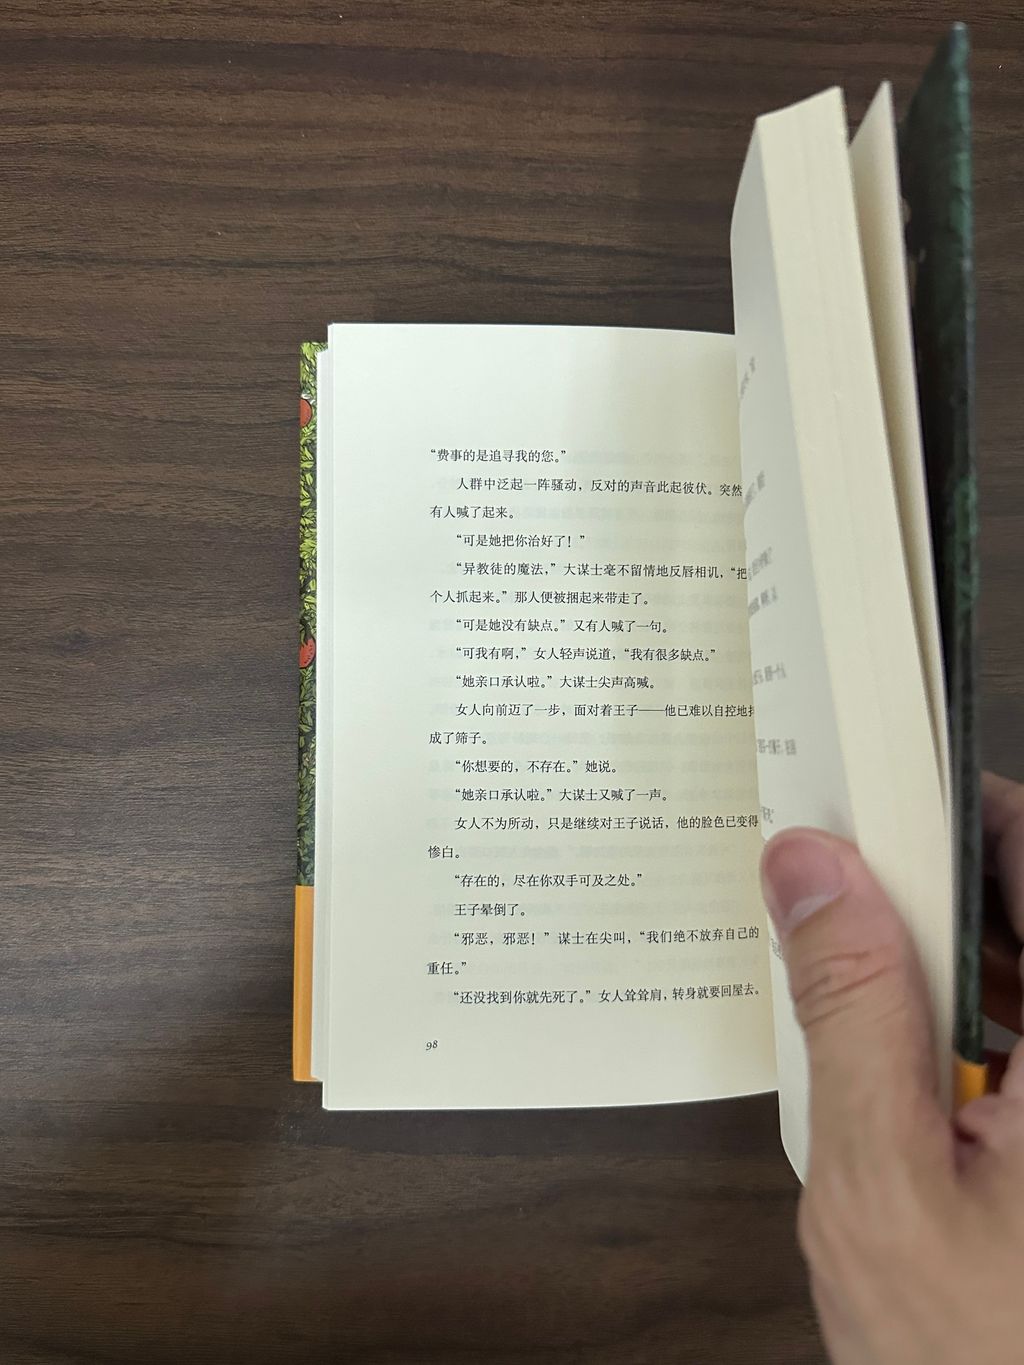 “费事的是追寻我的您。”
人群中泛起一阵骚动，反对的声音此起彼伏。突然
有人喊了起来。
“可是她把你治好了！”
“异教徒的魔法，”大谋士毫不留情地反唇相讥，“把
个人抓起来。”那人便被捆起来带走了。
“可是她没有缺点。”又有人喊了一句。
“可我有啊，”女人轻声说道，“我有很多缺点。”
“她亲口承认啦。”大谋士尖声高喊。
女人向前迈了一步，面对着王子——他已难以自控地
成了筛子。
“你想要的，不存在。”她说。
“她亲口承认啦。”大谋士又喊了一声。
女人不为所动，只是继续对王子说话，他的脸色已变得
惨白。
“存在的，尽在你双手可及之处。”
王子晕倒了。
“邪恶，邪恶！”谋士在尖叫，“我们绝不放弃自己的
重任。”
“还没找到你就先死了。”女人耸耸肩，转身就要回屋去。
98